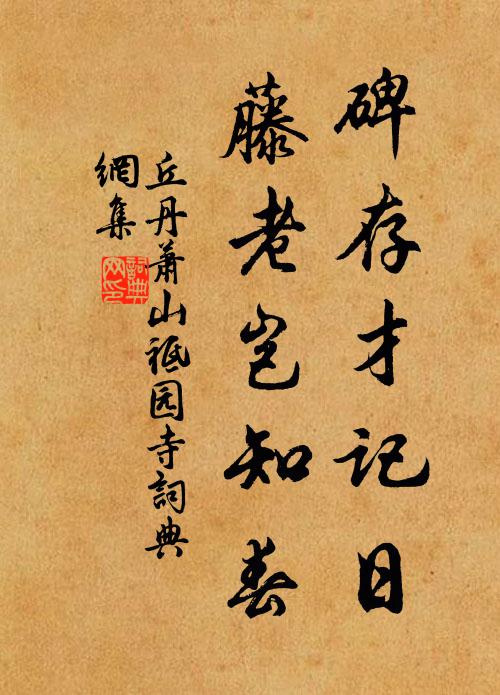 碑存才记日
藤老岂知春
丘丹萧山祗园寺詞典
網集
詞典
网印